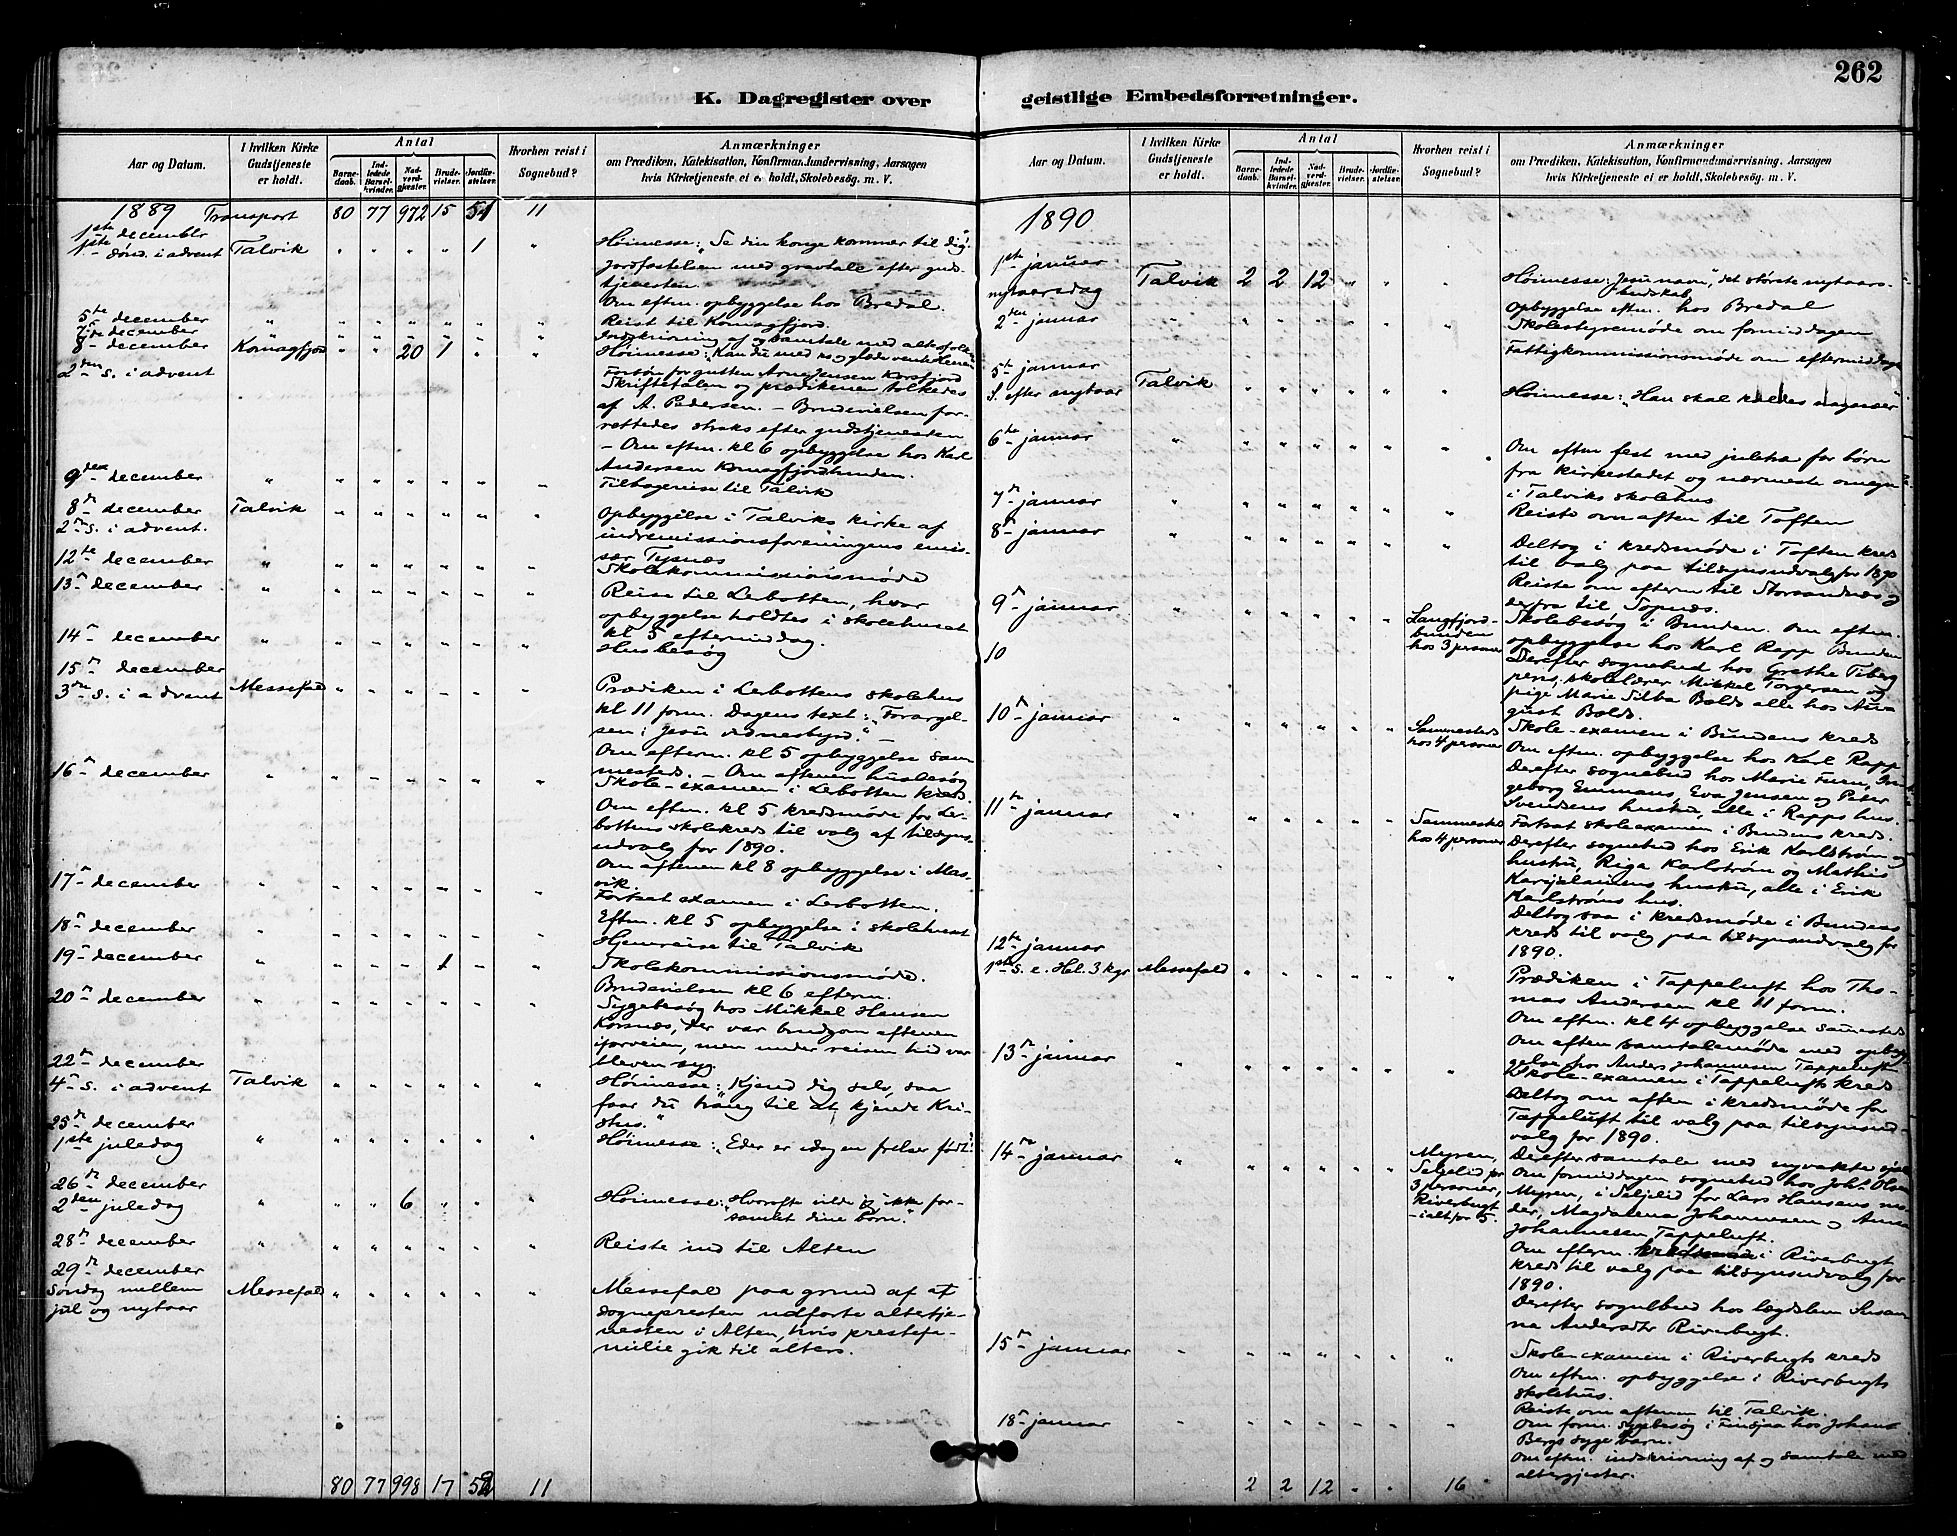 262
K. Dagregister over geistlige Embedsforretninger.
Aar og Datum.
I hvilken Kirke Gudstjeneste er holdt.
Antal
Barnedaab.
Indledede Barselkvinder.
Nadverdgjester.
Brudevielser.
Jordfæstelser.
Hvorhen reist i Sognebud?
Anmærkninger
om Prædiken, Katekisation, Konfirmandundervisning, Aarsagen
hvis Kirketjeneste ei er holdt, Skolebesøg. m. V.
1889 Transport 80 77 972 15 51 11
1ste december
1ste sønd. i advent Talvik " " " " 1 " Høimesse: "Se din konge kommer til dig"
Jordfæstelsen med gravtale efter guds-
tjenesten.
Om eftm. opbyggelse hos Bredal.
5te december " Reist til Komagfjord.
7de december " Indskrivning af og samtale med altersfolk
8de december Komagfjord " " 20 1 " " Høimesse: Kan du med
2den s. i advent
Forbøn for gutten Arne Jensen Korsfjord
Skriftetalen og prædikenen tolkedes
af A. Pedersen. – Brudevielsen for-
rettedes straks efter gudstjenesten
– Om eftm. kl 6 opbyggelse hos Karl
Andersen Komagfjordbunden.
9den december " Tilbagereise til Talvik
8de december Talvik Opbyggelse i Talviks kirke af
2den s. i advent. indremissionsforeningens emis-
sær Tysnæs
12te december " Skolekommissionsmøde
13de december " Reise til Lerbotten, hvor
opbyggelse holdtes i skolehuset
kl 5 eftermiddag.
14de december " Husbesøg
15de december
3die s. i advent Messefald Prædiken i Lerbottens skolehus
kl 11 form. Dagens text: "Forargel-
sen i Jesu vidnesbyrd." –
Om efterm. kl 5 opbyggelse sam-
mesteds. – Om aftenen husbesøg
16de december " Skole-examen i Lerbotten kreds.
Om eftm. kl 5 kredsmøde for Ler-
bottens skolekreds til valg af tilsyns-
udvalg for 1890.
Om aftenen kl 8 opbyggelse i Mas-
vik.
17de december " Fortsat examen i Lerbotten.
Eftm. kl 5 opbyggelse i skolehuset
18de december " Hjemreise til Talvik
19de december " 1 Skolekommissionsmøde.
Brudevielsen kl 6 efterm.
20de december " Sygebesøg hos Mikkel Hansen
Korsnæs, der var brudgom aftenen
iforveien, men under reisen hid var
bleven syg.
22de december
4de s. i advent Talvik Høimesse: "Kjend dig selv, saa
faar du trang til at kjende Kri-
stus."
25de december
1ste juledag " Høimesse: "Eder er idag en frelser født!
26de december
2den juledag " 6 Høimesse: "Hvorofte vilde jeg ikke for-
samlet dine børn."
28de december " Reiste ind til Alten
29de december
Søndag mellem Messefald Messefald paa grund af at
jul og nytaar sognepresten udførte altertje-
nesten i Alten, hvis prestefa-
milie gik til alters.
80 77 998 17 52 11
Aar og Datum.
I hvilken Kirke Gudstjeneste er holdt.
Antal
Barnedaab.
Indledede Barselkvinder.
Nadverdgjester.
Brudevielser.
Jordfæstelser.
Hvorhen reist i Sognebud?
Anmærkninger
om Prædiken, Katekisation, Konfirmandundervisning, Aarsagen
hvis Kirketjeneste ei er holdt, Skolebesøg, m. V.
1890
1ste januar
nytaarsdag Talvik 2 2 12 " " " Høimesse: "Jesu navn", det største nytaars-
budskab,
Opbyggelse eftm. hos Bredal
2den januar " Skolestyremøde om formiddagen
Fattigkommissionsmøde om eftermiddagen
5te januar
S. efter nytaar Talvik Høimesse: "Han skal kaldes nazaræer"
6te januar " Om eftm fest med juletræ for børn
fra kirkestedet og nærmeste omegn
i Talviks skolehus
7de januar " Reiste om aften til Toften
8de januar " Deltog i kredsmøde i Toften kreds
til valg paa tilsynsudvalg for 1890
Reiste om efterm til Storsandnæs og
derfra til Sopnæs.
9de januar " Langfjord-
bunden
hos 3 personer
Skolebesøg i Bunden. Om eftm.
opbyggelse hos Karl Rapp Bunden
10
Derefter sognebud hos Grethe Tiberg
pens, skolelærer Mikkel Torgersen og
pige Marie Silba Bolds alle hos Au-
gust Bolds.
10de januar " Sammesteds
hos 4 personer
Skole-examen i Bundens kreds
Om eftm. opbyggelse hos Karl Rapp
Derefter sognebud hos Marie Furu, In-
geborg Emmans, Eva Jensen og Peter
Svendsens hustru, alle i Rapps hus.
11te januar " Sammesteds
hos 4 personer
Fortsat skoleexamen i Bundens kreds.
Derefter sognebud hos Erik Karlstrøm og
hustru, Riga Karlstrøm og Mathis
Karjalainens hustru, alle i Erik
Karlstrøms hus.
Deltog saa i kredsmøde i Bundens
kreds til valg paa tilsynsudvalg for
1890.
12te januar
1ste s. e. Hel. 3 kgr Messefald Prædiken i Tappeluft hos Tho-
mas Andersen kl 11 form.
Om eftm. kl 4 opbyggelse sammesteds
Om aften samtalemøde med opbyg-
gelse hos Anders Johannesen Tappeluft
13de januar " Skole-examen i Tappelufts kreds
Deltog om aften i kredsmøde for
Tappeluft til valg paa tilsynsud-
valg for 1890.
Derefter samtale med nyvakte sjæle
14de januar " Myren,
Seljelid for
3 personer,
Riverbugt
– ialt for 5.
Om formiddagen sognebud hos Joh. Olsen
Myren, i Seljelid for Lars Hansens mo-
der, Magdalena Johannesen og Anna
Johannesen Tappeluft.
Om efterm. kredsmøde i Riverbugt
kreds til valg paa tilsynsudvalg for
1890.
Derefter sognebud hos lægdslem Susan-
na Andersdtr Riverbugt.
15de januar " Skole-examen i Riverbugts kreds
Om eftm. opbyggelse i Riverbugts
skolehus.
Reiste om aftenen til Talvik.
18de januar " Om form. sygebesøg i hos Johans
Bergs syge barn.
Om eftm. indskrivning af og samtale med
altergjester.
2 2 12 " " 16